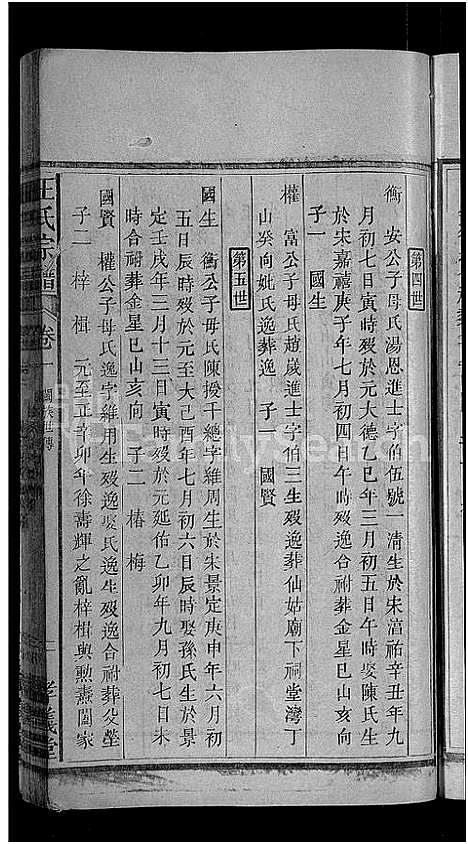 第四世
衡 安公子母氏湯恩進士字伯伍號一清生於宋淳祐辛丑年九
月初七日寅時歿於元大德乙巳年三月初五日午時娶陳氏生
於宋嘉禧庚子年七月初四日午時歿逸合祔葬金星巳山亥向
子一 國生
權 富公子母氏趙歲進士字伯三生歿逸葬仙姑廟下祠堂灣丁
山癸向妣氏逸葬逸 子一 國賢
第五世
國生 衡公子母氏陳授千總字維周生於宋景定庚申年六月初
五日辰時歿於元至大己酉年七月初六日辰時娶孫氏生於景
定壬戌年三月十三日寅時歿於元延佑乙卯年九月初七日未
時合祔葬金星巳山亥向 子二 椿 梅
國賢 權公子母氏逸字維用生歿逸娶氏逸生歿逸合祔葬父塋
子二 梓 楫 元至正辛卯年徐壽輝之亂梓楫與勲燾闔家
氏宗譜 卷一
孝義堂
FamilySearch